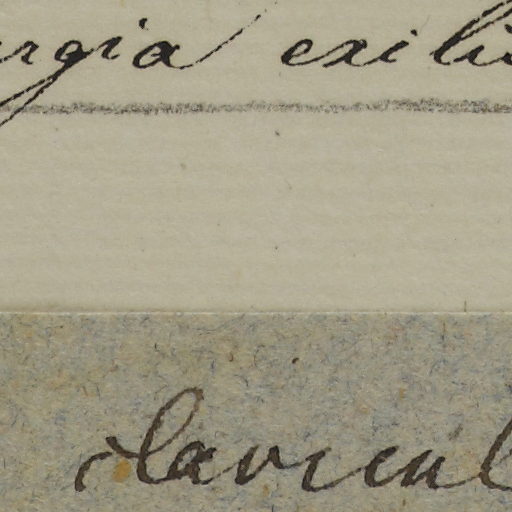 urgia exiliu
clavicul